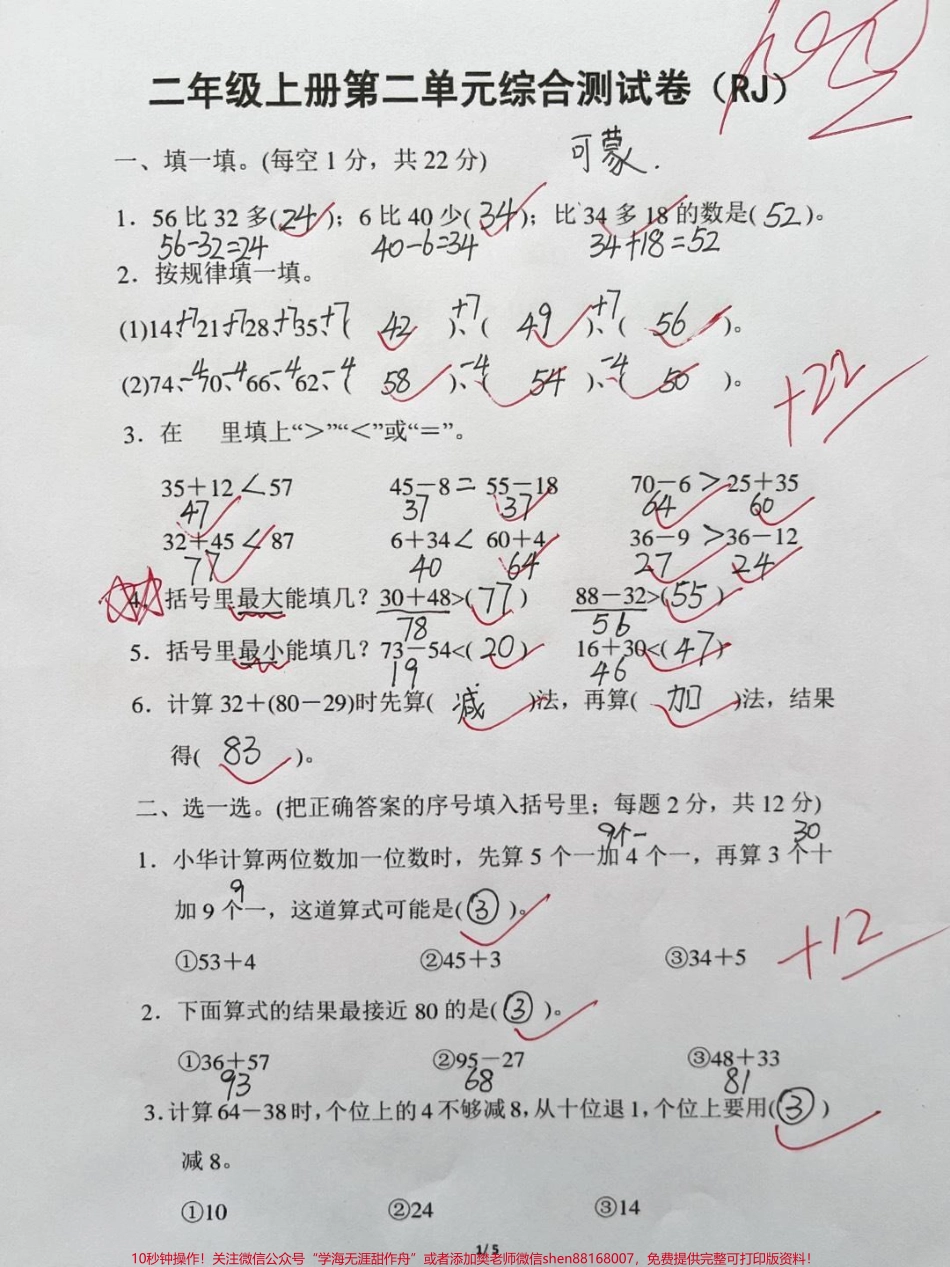 二年级上册第二单元综合测试卷（RJ）
一、填一填。(每空1分，共22分) 可蒙.
1. 56比32多(24)；6比40少(34)；比34多18的数是(52)。
56-32=24 40-6=34 34+18=52
2. 按规律填一填。
+7 +7
(1)14、+7 21、+7 28、+7 35、+7 ( 42 )、( 49 )、( 56 )。
(2)74、-4 70、-4 66、-4 62、-4 ( 58 )、-4 ( 54 )、-4 ( 50 )。
+22
3. 在 里填上“>”“<”或“=”。
35+12<57 45-8=55-18 70-6>25+35
47 37 37 64 60
32+45<87 6+34<60+4 36-9>36-12
77 40 64 27 24
4. 括号里最大能填几？30+48>(77) 88-32>(55)
78 56
5. 括号里最小能填几？73-54<(20) 16+30<(47)
19 46
6. 计算32+(80-29)时先算( 减 )法，再算( 加 )法，结果
得( 83 )。
二、选一选。(把正确答案的序号填入括号里；每题2分，共12分)
9个一 30
1. 小华计算两位数加一位数时，先算5个一加4个一，再算3个十
9
加9个一，这道算式可能是(③)。
①53+4 ②45+3 ③34+5
+12
2. 下面算式的结果最接近80的是(③)。
①36+57 ②95-27 ③48+33
93 68 81
3.计算64-38时,个位上的4不够减8,从十位退1,个位上要用(③)
减8。
①10 ②24 ③14
1/5
10秒钟操作！关注微信公众号“学海无涯甜作舟”或者添加樊老师微信shen88168007，免费提供完整可打印版资料！